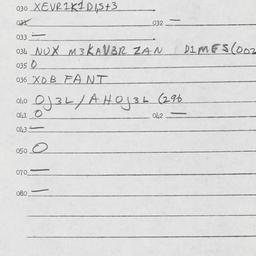 030 XEVR1K1D1S+3
032 —
033 —
034 NUX M3KAVBR ZAN D1MES(002
035 0
036 XDB FANT
040 OJ3L/AHOJ3L (296
041 0 042 —
043 —
050 0
070 —
080 —